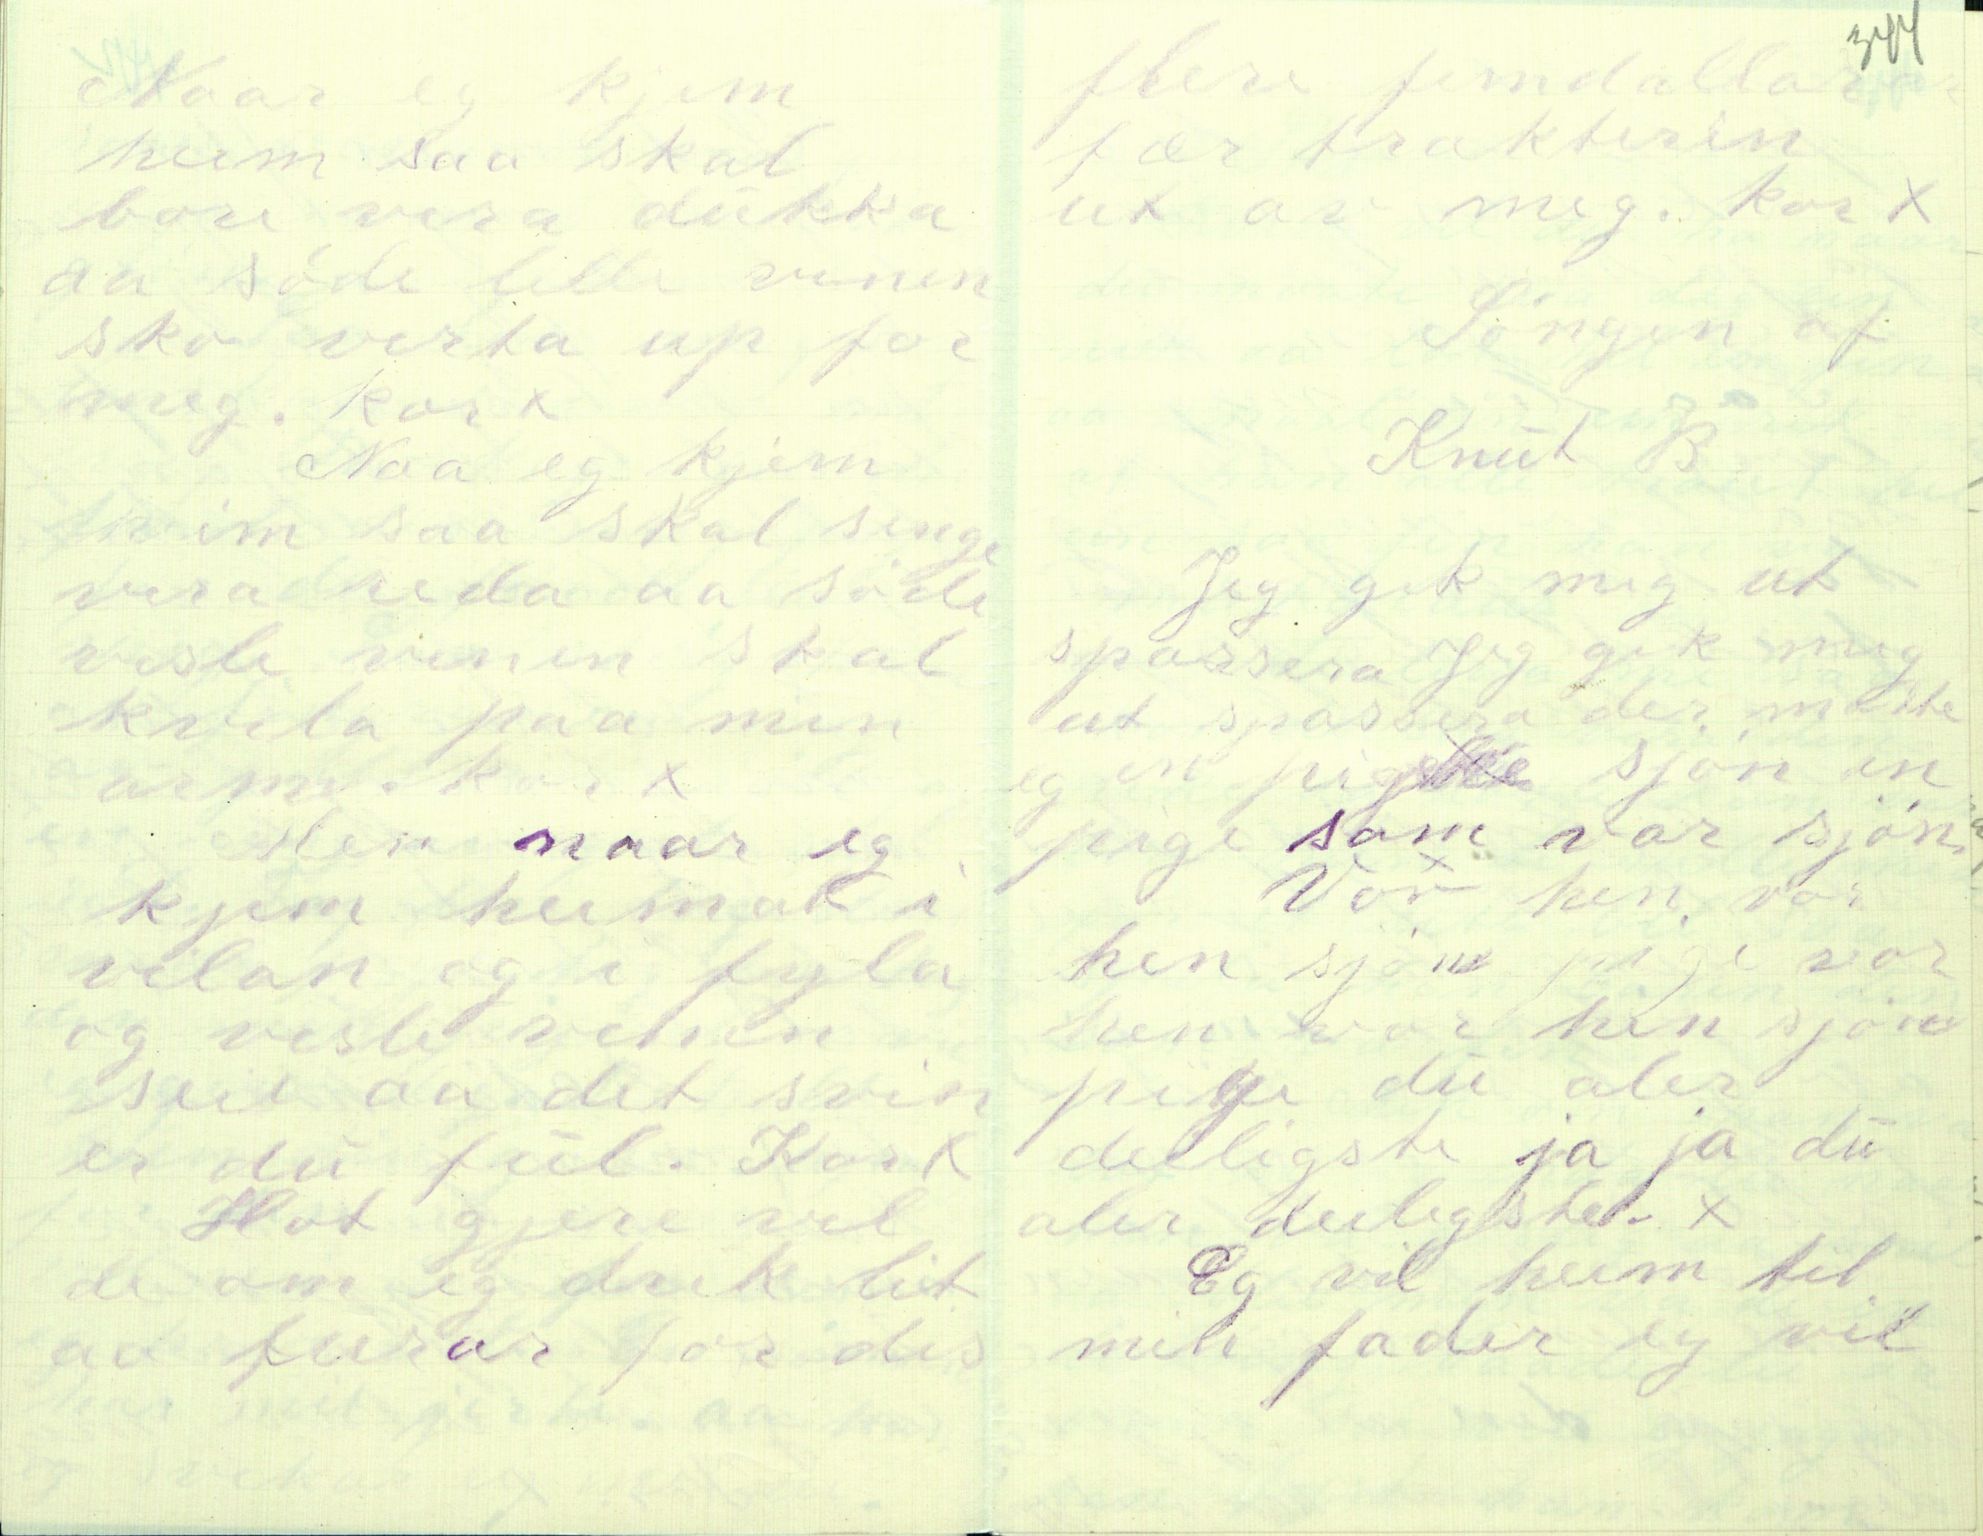 Naar eg kjem
heim saa skal
bore vera dükka
aa söde lille venen
ska verta up for
meg. Kor x
Naa eg kjem
heim saa skal senge
vera reda aa söde
vesle venen skal
kvila paa min
arm. kor x
Men naar eg
kjem heimat i
vilan og i fyla
og vesle venen
seie aa det svin
er dü fül. Kor x
Hot gjere vel
de om eg drik lit
aa furar for dis
344
flere femdallarar
fær trakterin
ut av meg. kor x
Söngen af
Knüt B
Jeg gik mig ut
spassera Jeg gik mig
ut spassera der møtte
eg en pige sjön en
pige som var sjön.
Vor hen, vor
hen sjön pige vor
hen vor hen sjön
pige dü aler
deiligste ja ja dü
aler deiligste. x
Eg vil heim til
min fader eg vil